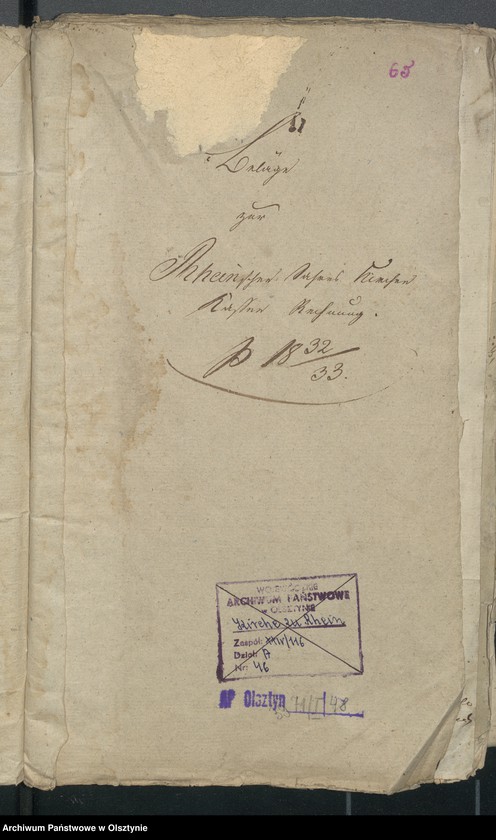 65
Beläge
zur
Rheinscher Kirchen
Kassen Rechnung.
p 18 32/33.
WOJEWÓDZKIE
ARCHIWUM PAŃSTWOWE
w OLSZTYNIE
Kirche zu Rhein
Zespół: XLIV/116
Dział: A
Nr: 46
AP Olsztyn
Archiwum Państwowe w Olsztynie